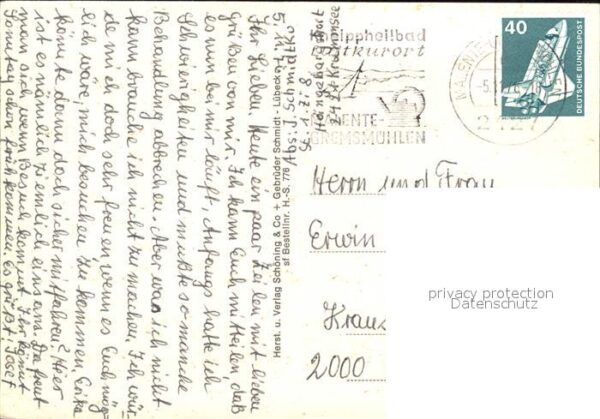 5.11.76
Ihr Lieben. Heute ein paar Zeilen mit lieben
Grüßen von mir. Ich kann Euch mitteilen, daß
es nun bei mir läuft. Anfangs hatte ich
Schwierigkeiten und mußte so manche
Behandlung abbrechen. Aber was ich nicht
kann brauche ich nicht zu machen. Ich wür-
de mich doch sehr freuen wenn es Euch mög-
lich wäre, mich besuchen zu kommen. Erika
könnte dann doch sicher mitfahren? Hier
ist es nämlich ziemlich einsam. Da freut
man sich wenn Besuch kommt. Ihr könnt
Sonntag schon früh kommen. Es grüßt, Josef
Herst. u. Verlag Schöning & Co + Gebrüder Schmidt - Lübeck
sf Bestellnr. H.-S. 776
Abs: J. Schmidt
z. Zt.
Kneippheilbad
Luftkurort
MALENTE-
GREMSMÜHLEN
MALENTE
-5.11.76
2427
40
DEUTSCHE BUNDESPOST
Herrn und Frau
Erwin
2000
privacy protection
Datenschutz